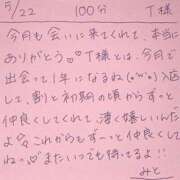 5/22 100分 T様
今月も会いに来てくれて、本当に
ありがとう♡T様とは、今月で
出会って1年になるね(^o^)入店
して、割と初期の頃からずっと
仲良くしてくれて凄く嬉しいんだ
よ これからもずーっと仲良くして
ね♡またいつでも待ってるよ!!
みと